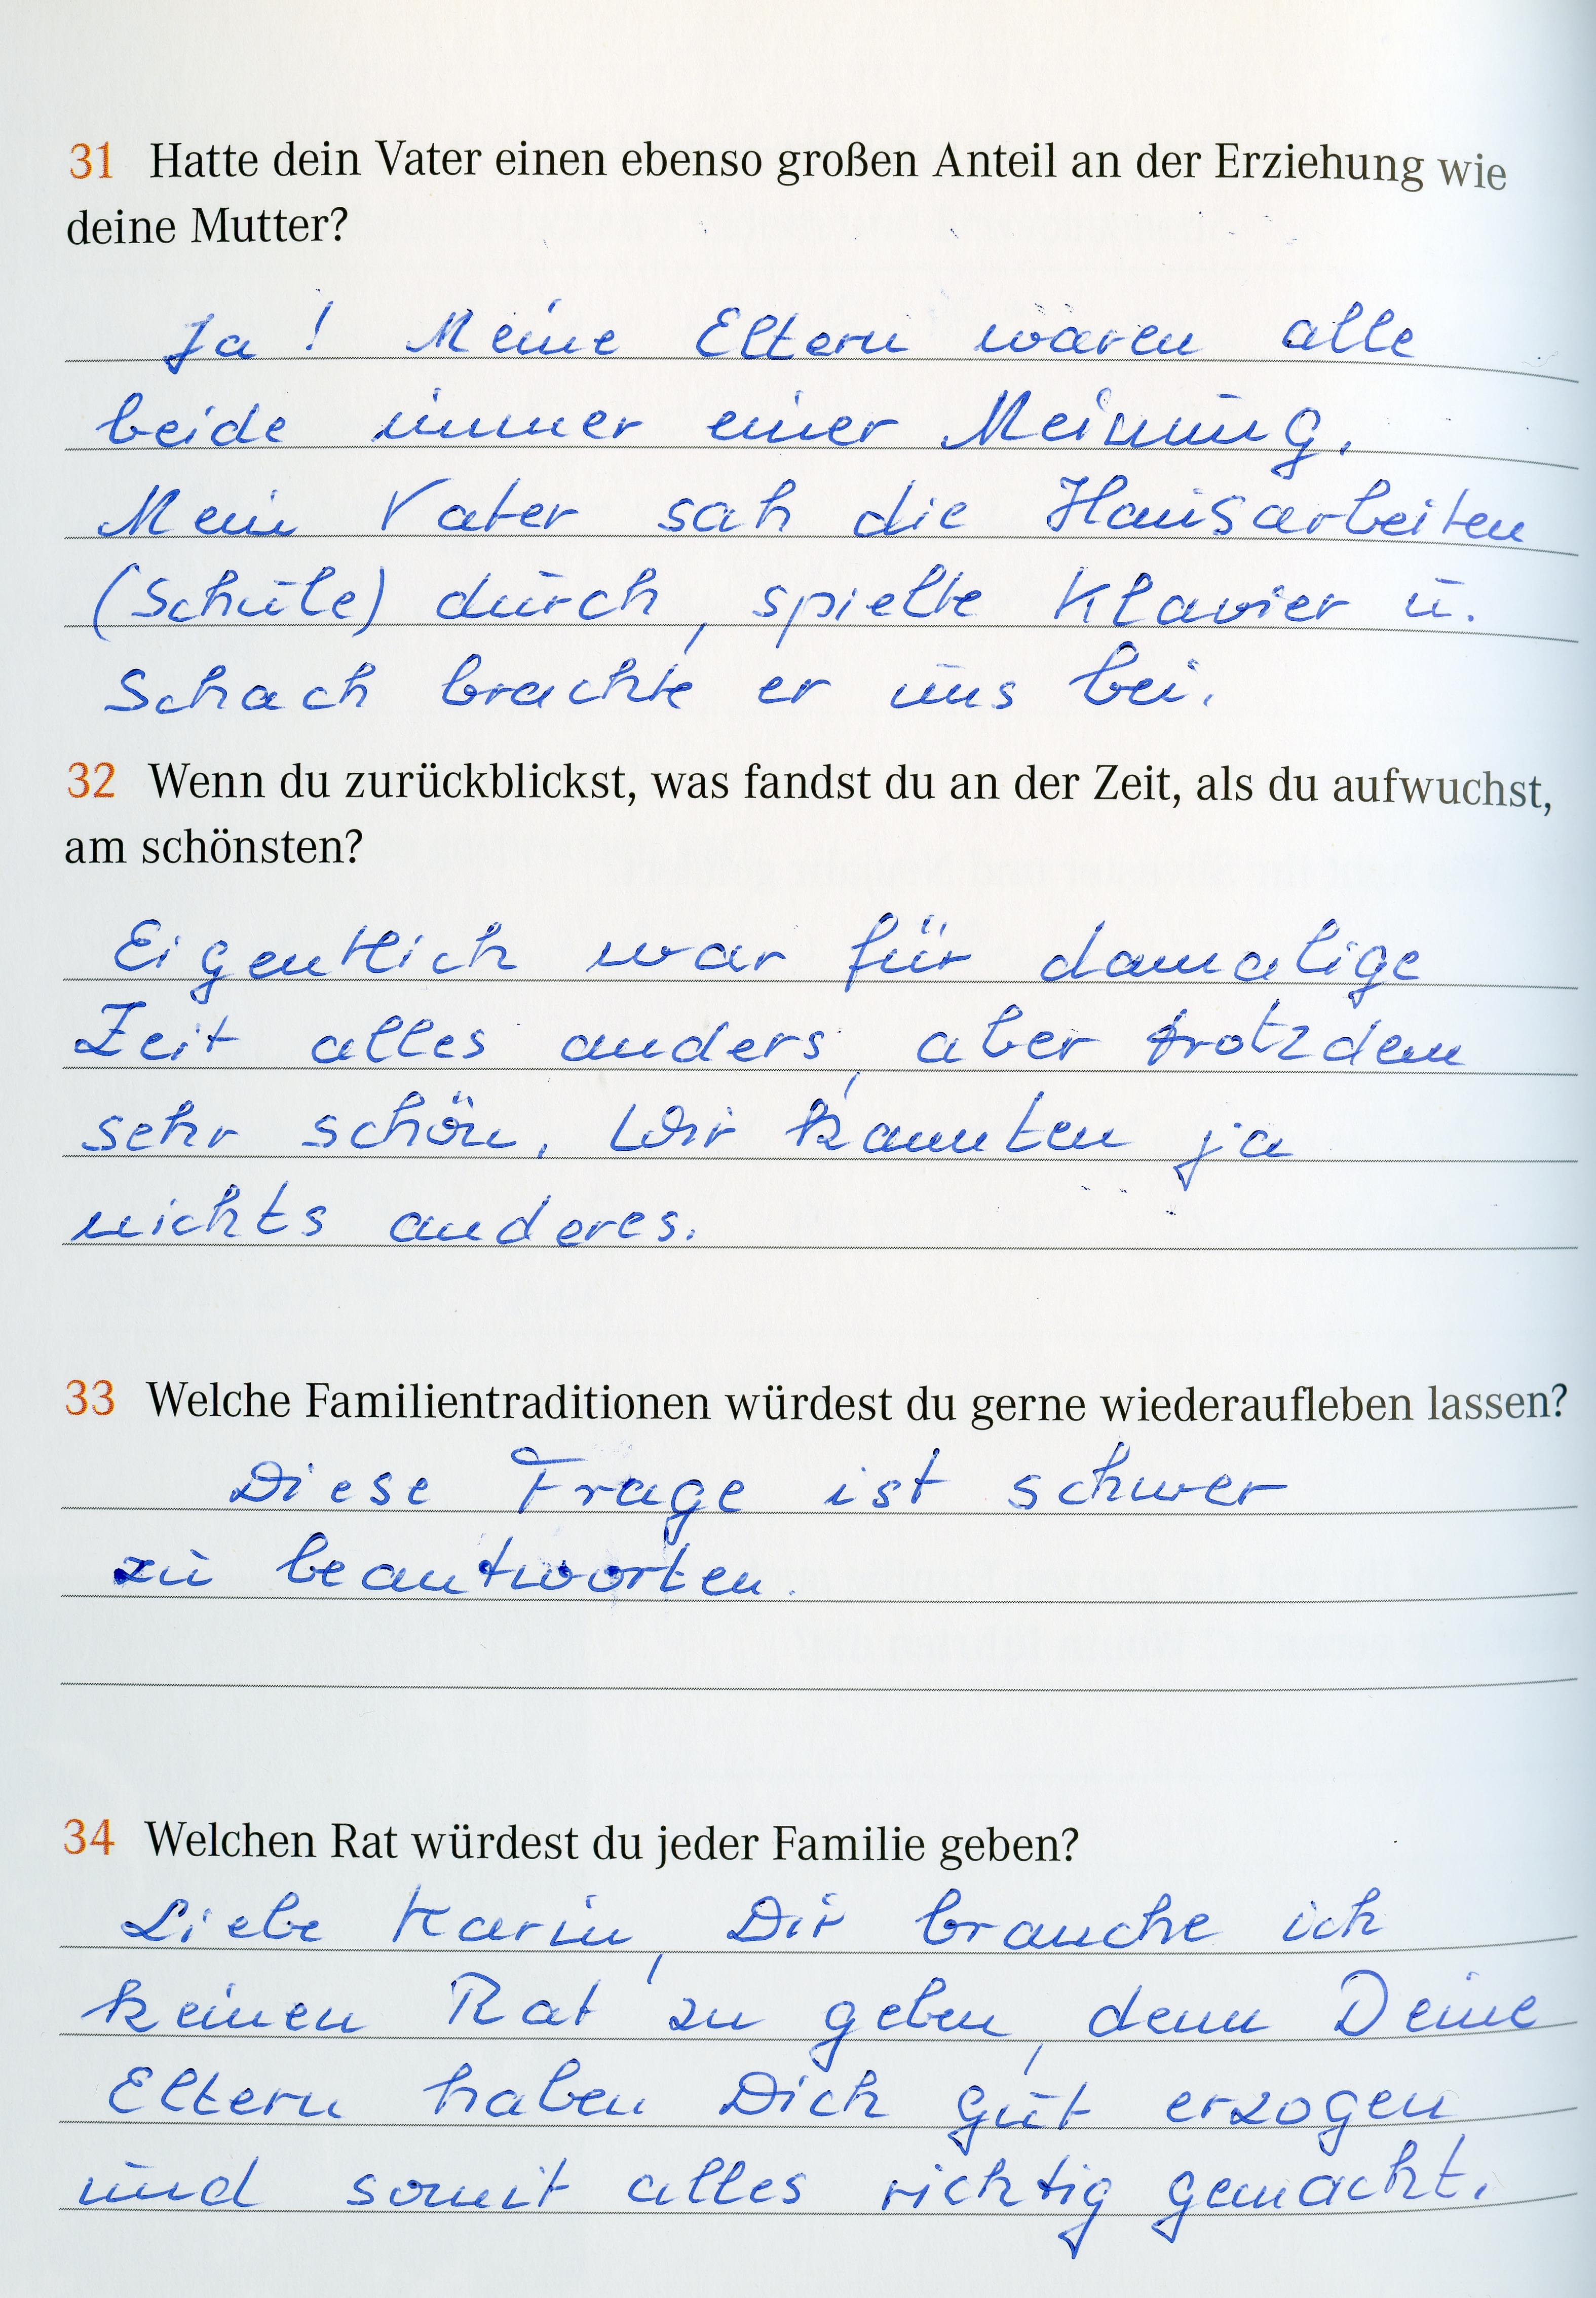 31 Hatte dein Vater einen ebenso großen Anteil an der Erziehung wie
deine Mutter?
Ja! Meine Eltern waren alle
beide immer einer Meinung.
Mein Vater sah die Hausarbeiten
(Schule) durch, spielte Klavier u.
Schach brachte er uns bei.
32 Wenn du zurückblickst, was fandst du an der Zeit, als du aufwuchst,
am schönsten?
Eigentlich war für damalige
Zeit alles anders, aber trotzdem
sehr schön. Wir kannten ja
nichts anderes.
33 Welche Familientraditionen würdest du gerne wiederaufleben lassen?
Diese Frage ist schwer
zu beantworten.
34 Welchen Rat würdest du jeder Familie geben?
Liebe Karin, Dir brauche ich
keinen Rat zu geben, denn Deine
Eltern haben Dich gut erzogen
und somit alles richtig gemacht.